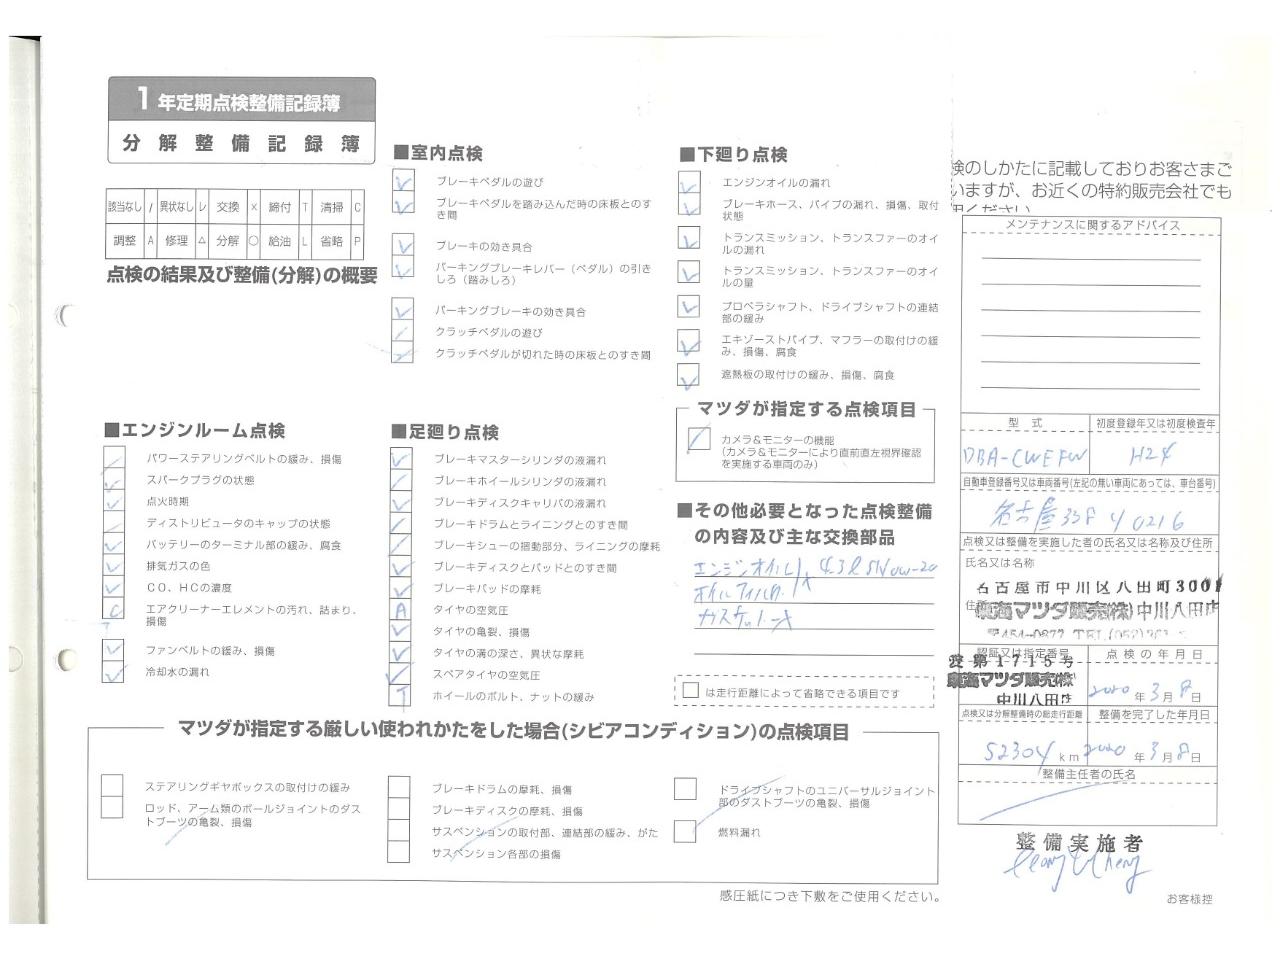 1年定期点検整備記録簿
分解整備記録簿
該当なし / 異状なし レ 交換 × 締付 T 清掃 C
調整 A 修理 △ 分解 ○ 給油 L 省略 P
点検の結果及び整備(分解)の概要
■室内点検
ブレーキペダルの遊び
ブレーキペダルを踏み込んだ時の床板とのすき間
ブレーキの効き具合
パーキングブレーキレバー(ペダル)の引きしろ(踏みしろ)
パーキングブレーキの効き具合
クラッチペダルの遊び
クラッチペダルが切れた時の床板とのすき間
■下廻り点検
エンジンオイルの漏れ
ブレーキホース、パイプの漏れ、損傷、取付状態
トランスミッション、トランスファーのオイルの漏れ
トランスミッション、トランスファーのオイルの量
プロペラシャフト、ドライブシャフトの連結部の緩み
エキゾーストパイプ、マフラーの取付けの緩み、損傷、腐食
遮熱板の取付けの緩み、損傷、腐食
マツダが指定する点検項目
カメラ&モニターの機能
(カメラ&モニターにより直前直左視界確認を実施する車両のみ)
■エンジンルーム点検
パワーステアリングベルトの緩み、損傷
スパークプラグの状態
点火時期
ディストリビュータのキャップの状態
バッテリーのターミナル部の緩み、腐食
排気ガスの色
CO、HCの濃度
C エアクリーナーエレメントの汚れ、詰まり、損傷
ファンベルトの緩み、損傷
冷却水の漏れ
■足廻り点検
ブレーキマスターシリンダの液漏れ
ブレーキホイールシリンダの液漏れ
ブレーキディスクキャリパの液漏れ
ブレーキドラムとライニングとのすき間
ブレーキシューの摺動部分、ライニングの摩耗
ブレーキディスクとパッドとのすき間
ブレーキパッドの摩耗
A タイヤの空気圧
タイヤの亀裂、損傷
タイヤの溝の深さ、異状な摩耗
スペアタイヤの空気圧
T ホイールのボルト、ナットの緩み
■その他必要となった点検整備の内容及び主な交換部品
エンジンオイル 4.3ℓ SN 0W-20
オイルフィルター
ガスケット
は走行距離によって省略できる項目です
マツダが指定する厳しい使われかたをした場合(シビアコンディション)の点検項目
ステアリングギヤボックスの取付けの緩み
ロッド、アーム類のボールジョイントのダストブーツの亀裂、損傷
ブレーキドラムの摩耗、損傷
ブレーキディスクの摩耗、損傷
サスペンションの取付部、連結部の緩み、がた
サスペンション各部の損傷
ドライブシャフトのユニバーサルジョイント部のダストブーツの亀裂、損傷
燃料漏れ
感圧紙につき下敷をご使用ください。
検のしかたに記載しておりお客さまご
いますが、お近くの特約販売会社でも
用ください
メンテナンスに関するアドバイス
型式 初度登録年又は初度検査年
DBA-CWEFW H24
自動車登録番号又は車両番号(左記の無い車両にあっては、車台番号)
名古屋 338
点検又は整備を実施した者の氏名又は名称及び住所
氏名又は名称
名古屋市中川区八田町3001
住所 東海マツダ販売(株)中川八田店
〒454-0877 TEL(052)
認証又は指定番号 点検の年月日
愛第1715号
東海マツダ販売(株)
中川八田店
2020年3月8日
点検又は分解整備時の総走行距離 整備を完了した年月日
52304 km 2020年3月8日
整備主任者の氏名
整備実施者
お客様控